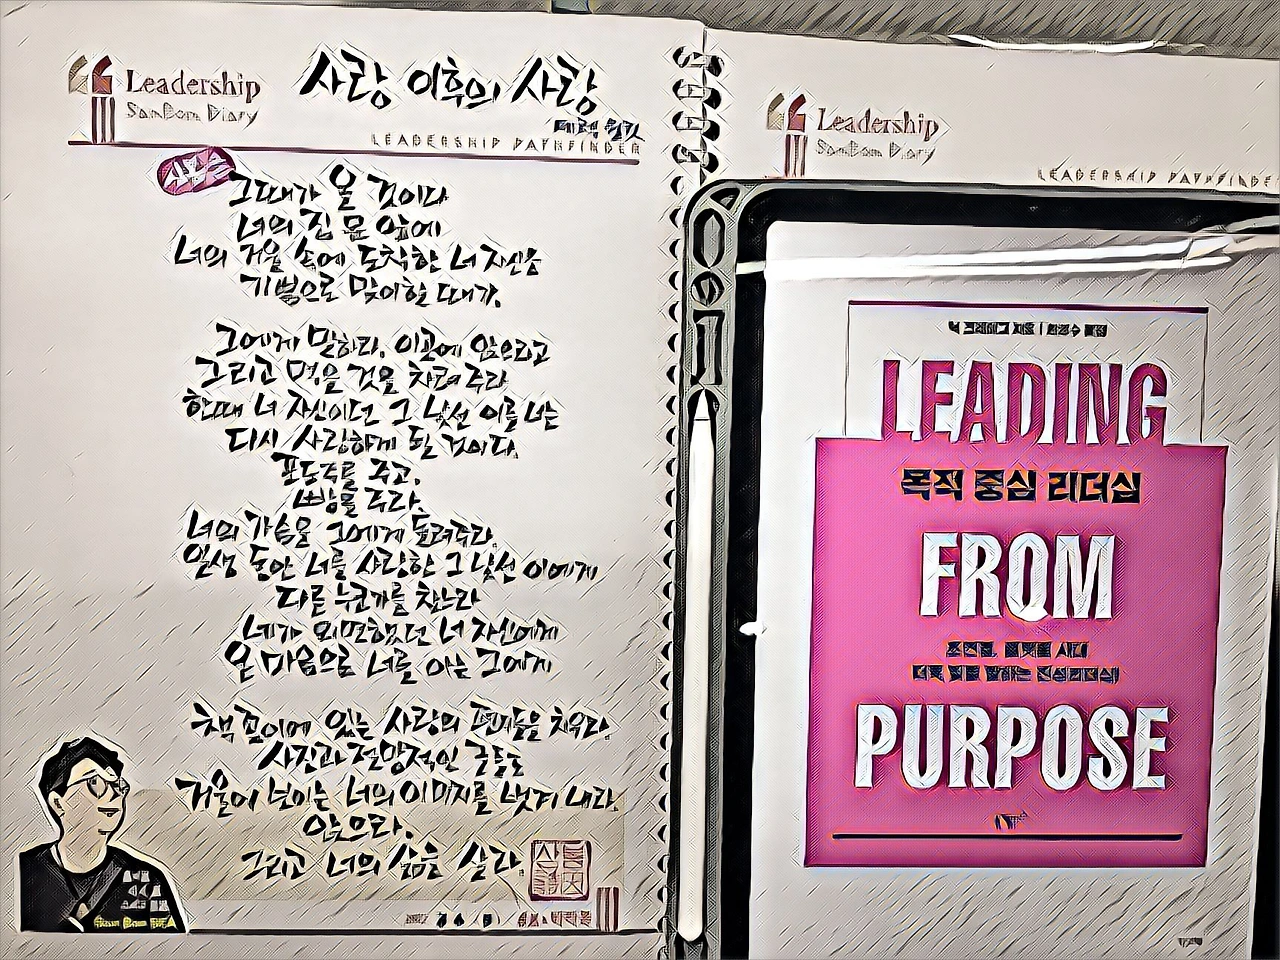 Leadership
SanBom Diary
사랑 이후의 사랑
데렉 월컷
LEADERSHIP PATHFINDER
그때가 올 것이다
너의 집 문 앞에
너의 거울 속에 도착한 너 자신을
기쁨으로 맞이할 때가.
그에게 말하라. 이곳에 앉으라고
그리고 먹을 것을 차려 주라
한때 너 자신이던 그 낯선 이를 너는
다시 사랑하게 될 것이다.
포도주를 주고.
빵을 주라.
너의 가슴을 그에게 돌려주라.
일생 동안 너를 사랑한 그 낯선 이에게
다른 누군가를 찾느라
네가 외면했던 너 자신에게
온 마음으로 너를 아는 그에게
책꽂이에 있는 사랑의 편지들을 치우라.
사진과 절망적인 글들도
거울에 보이는 너의 이미지를 벗겨 내라.
앉으라.
그리고 너의 삶을 살라.
Leadership
SanBom Diary
LEADERSHIP PATHFINDE
LEADING
목적 중심 리더십
FROM
PURPOSE